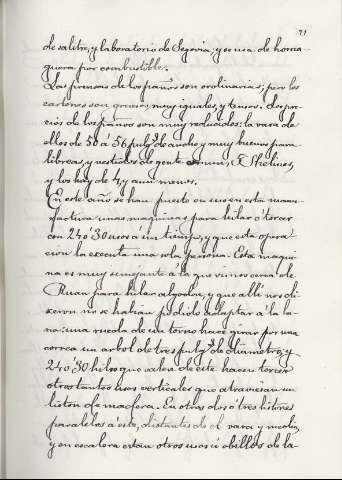 71
de salitre, y laboratorio de Segovia, y se usa de horna-
guera por combustible.
Las prensas de los paños son ordinarias; pero los
cartones son gruesos, muy iguales, y tersos. Los pre-
cios de los paños son muy reducidos: la vara de
ellos de 50 á 56 pulg.s de ancho y muy buenos para
libreas, y vestidos de gente comun, 5 Shelines,
y los hay de 4 y aun menos.
En este año se han puesto en uso en esta manu-
factura unas maquinas para hilar ó torcer
con 24 ó 30 usos á un tiempo, y que esta opera-
cion la executa una sola persona. Esta maqui-
na es muy semejante á la que vimos cerca de
Ruan para hilar algodon, y que alli nos di-
xeron no se habian podido adaptar á la la-
na: una rueda de un torno hace girar por una
correa un arbol de tres pulg.s de diametro, y
24 ó 30 hilos que salen de este hacen torcer
otros tantos usos verticales que atraviesan un
liston de madera. En otros dos ó tres listones
paralelos á este, distantes de el vara y media,
y en escalera estan otros usos ú obillos de la-